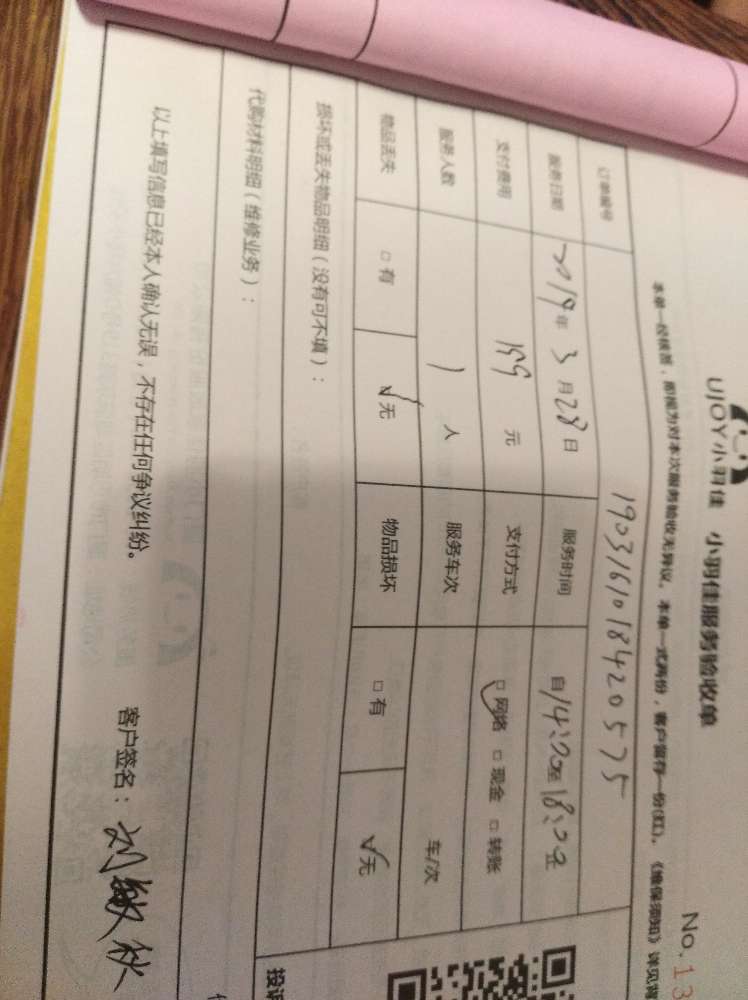 UJOY小羽佳 小羽佳服务验收单
No. 13
本单一经核签，即视为对本次服务验收无异议。本单一式两份，客户留存一份(红)。《维保须知》详见背
订单编号 1903161018420575
服务日期 2019年3月28日 服务时间 自14:00至18:00
支付费用 159元 支付方式 □网络 □现金 □转账
服务人数 1人 服务车次 车/次
物品丢失 □有 √无 物品损坏 □有 √无
损坏或丢失物品明细（没有可不填）：
代购材料明细（维修业务）：
投诉
以上填写信息已经本人确认无误，不存在任何争议纠纷。
客户签名：刘敏秋